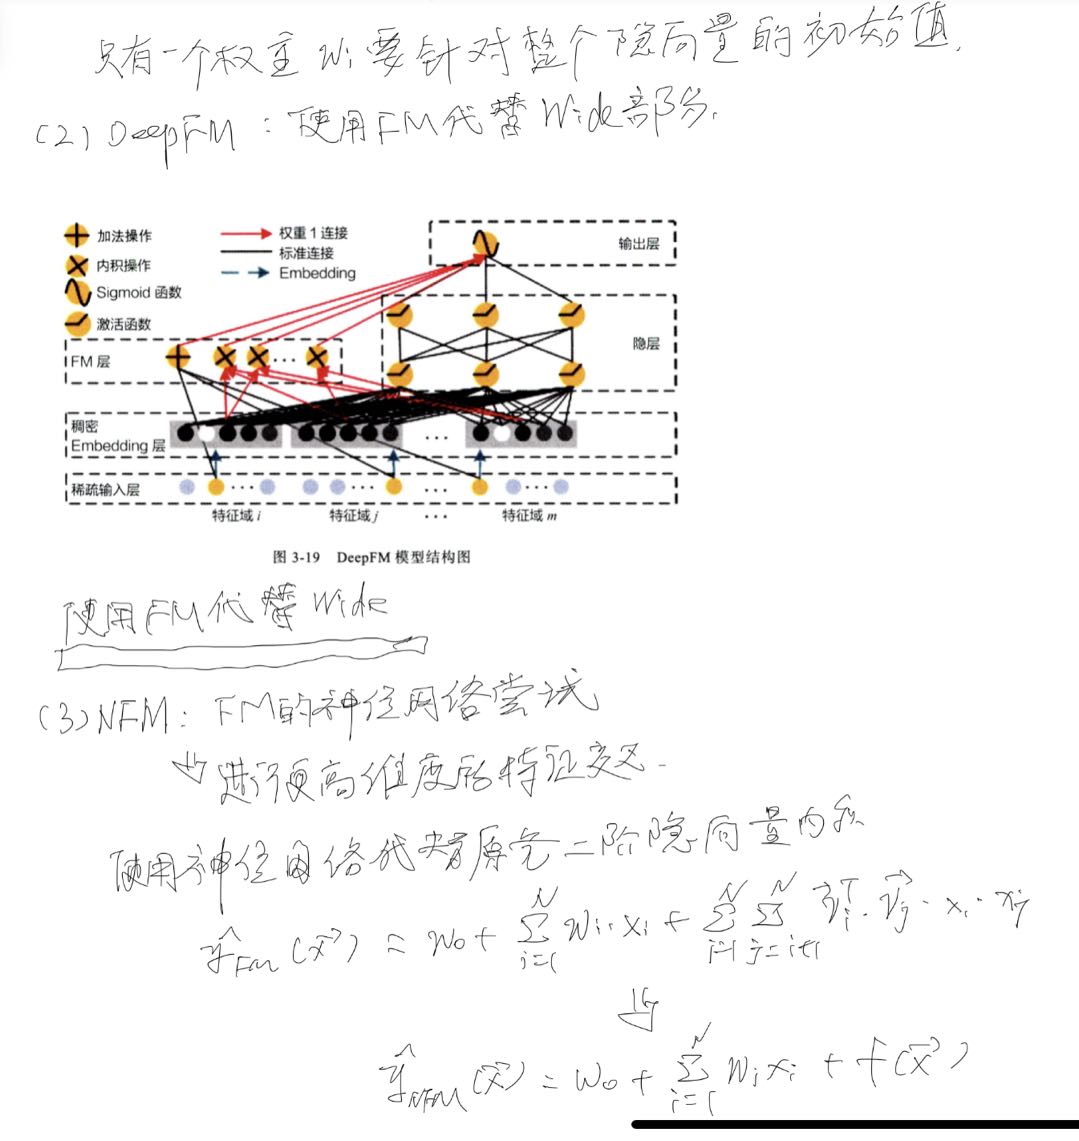 只有一个权重 Wi 要针对整个隐向量的初始值.
(2) DeepFM : 使用FM代替 Wide部分.
加法操作 权重 1 连接 输出层
内积操作 标准连接
Sigmoid 函数 Embedding
激活函数
FM 层 隐层
稠密
Embedding 层 ...
稀疏输入层 ... ... ... ... ... ...
特征域 i 特征域 j ... 特征域 m
图 3-19 DeepFM 模型结构图
使用FM代替 Wide
(3) NFM: FM的神经网络尝试
进行更高维度的特征交叉.
使用神经网络代替原先二阶隐向量内积
ŷFM (x⃗) = w0 + ∑_{i=1}^{N} wi·xi + ∑_{i=1}^{N} ∑_{j=i+1}^{N} v⃗i^T · v⃗j · xi · xj
⇓
ŷNFM (x⃗) = w0 + ∑_{i=1}^{N} wi xi + f(x⃗)